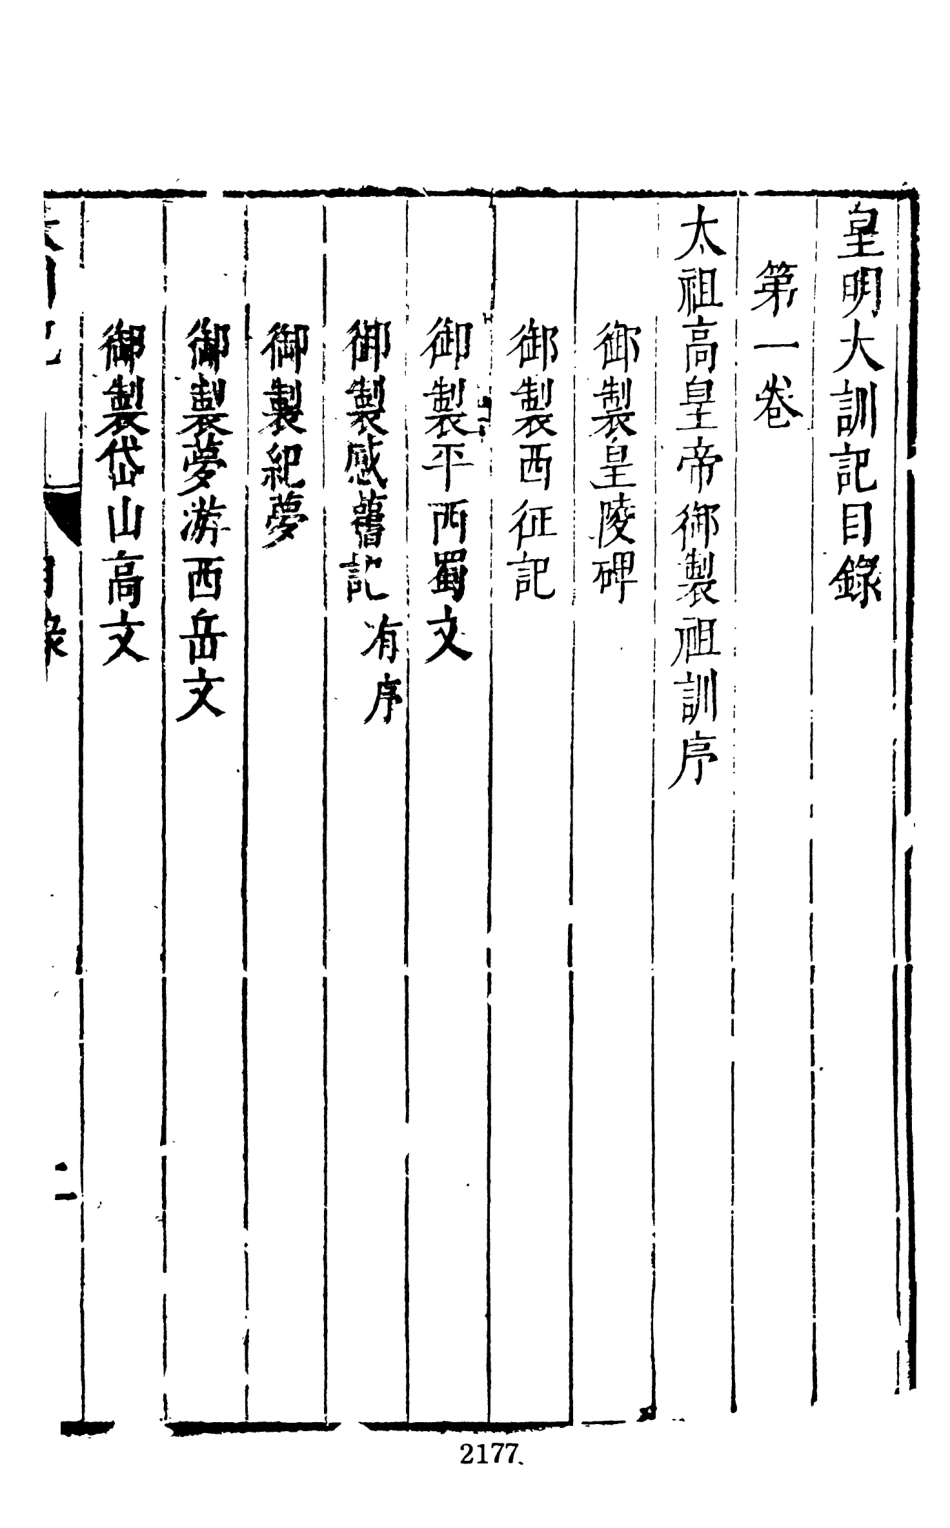 皇明大訓記目錄
第一卷
太祖高皇帝御製祖訓序
御製皇陵碑
御製西征記
御製平西蜀文
御製感舊記有序
御製紀夢
御製夢游西岳文
御製岱山高文
目錄
二
2177